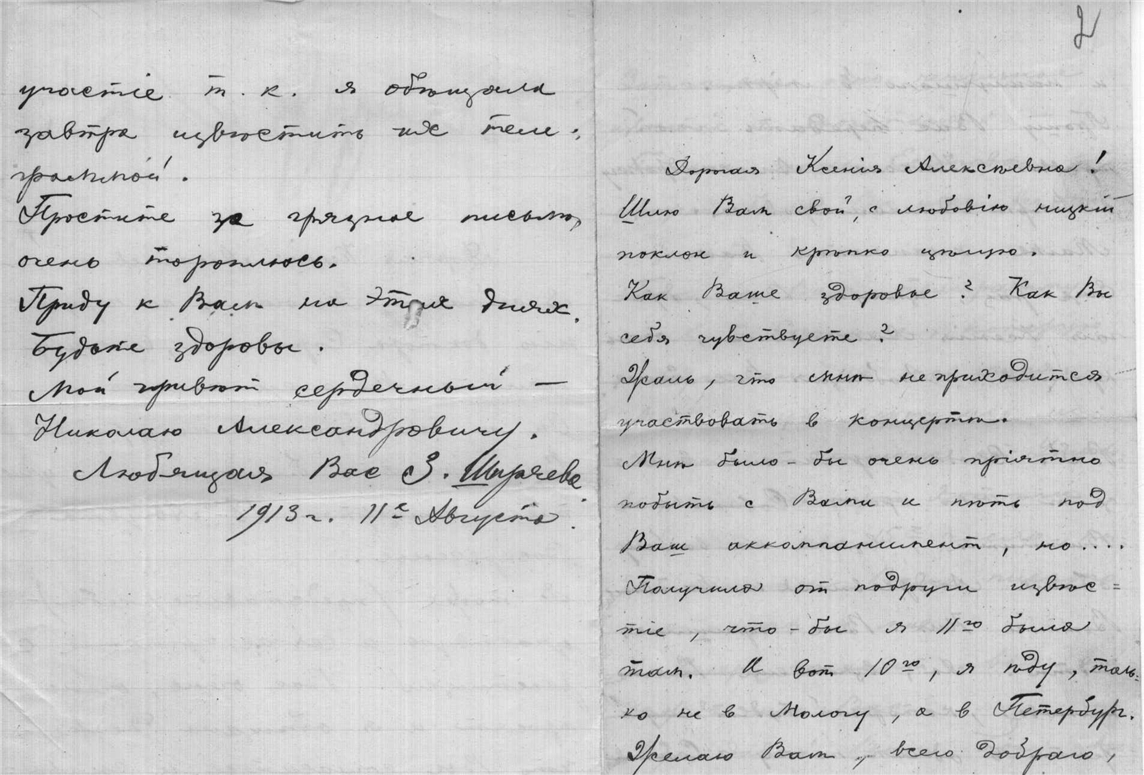 2
Дорогая Ксенія Алексѣевна!
Шлю Вам свой, с любовію низкій
поклон и крѣпко цѣлую.
Как Ваше здоровье? Как Вы
себя чувствуете?
Жаль, что мнѣ не приходится
участвовать в концертѣ.
Мнѣ было-бы очень пріятно
побыть с Вами и пѣть под
Ваш аккомпанимент, но....
Получила от подруги извѣс=
тіе, что-бы я 11го была
там. И вот 10го, я ѣду, толь=
ко не в Мологу, а в Петербург.
Желаю Вам, всего добраго,
участіе т. к. я обѣщала
завтра извѣстить их теле-
граммой.
Простите за грязное письмо,
очень тороплюсь.
Приду к Вам на этих днях.
Будьте здоровы.
Мой привѣт сердечный —
Николаю Александровичу.
Любящая Вас З. Ширяева
1913 г. 11е Августа.